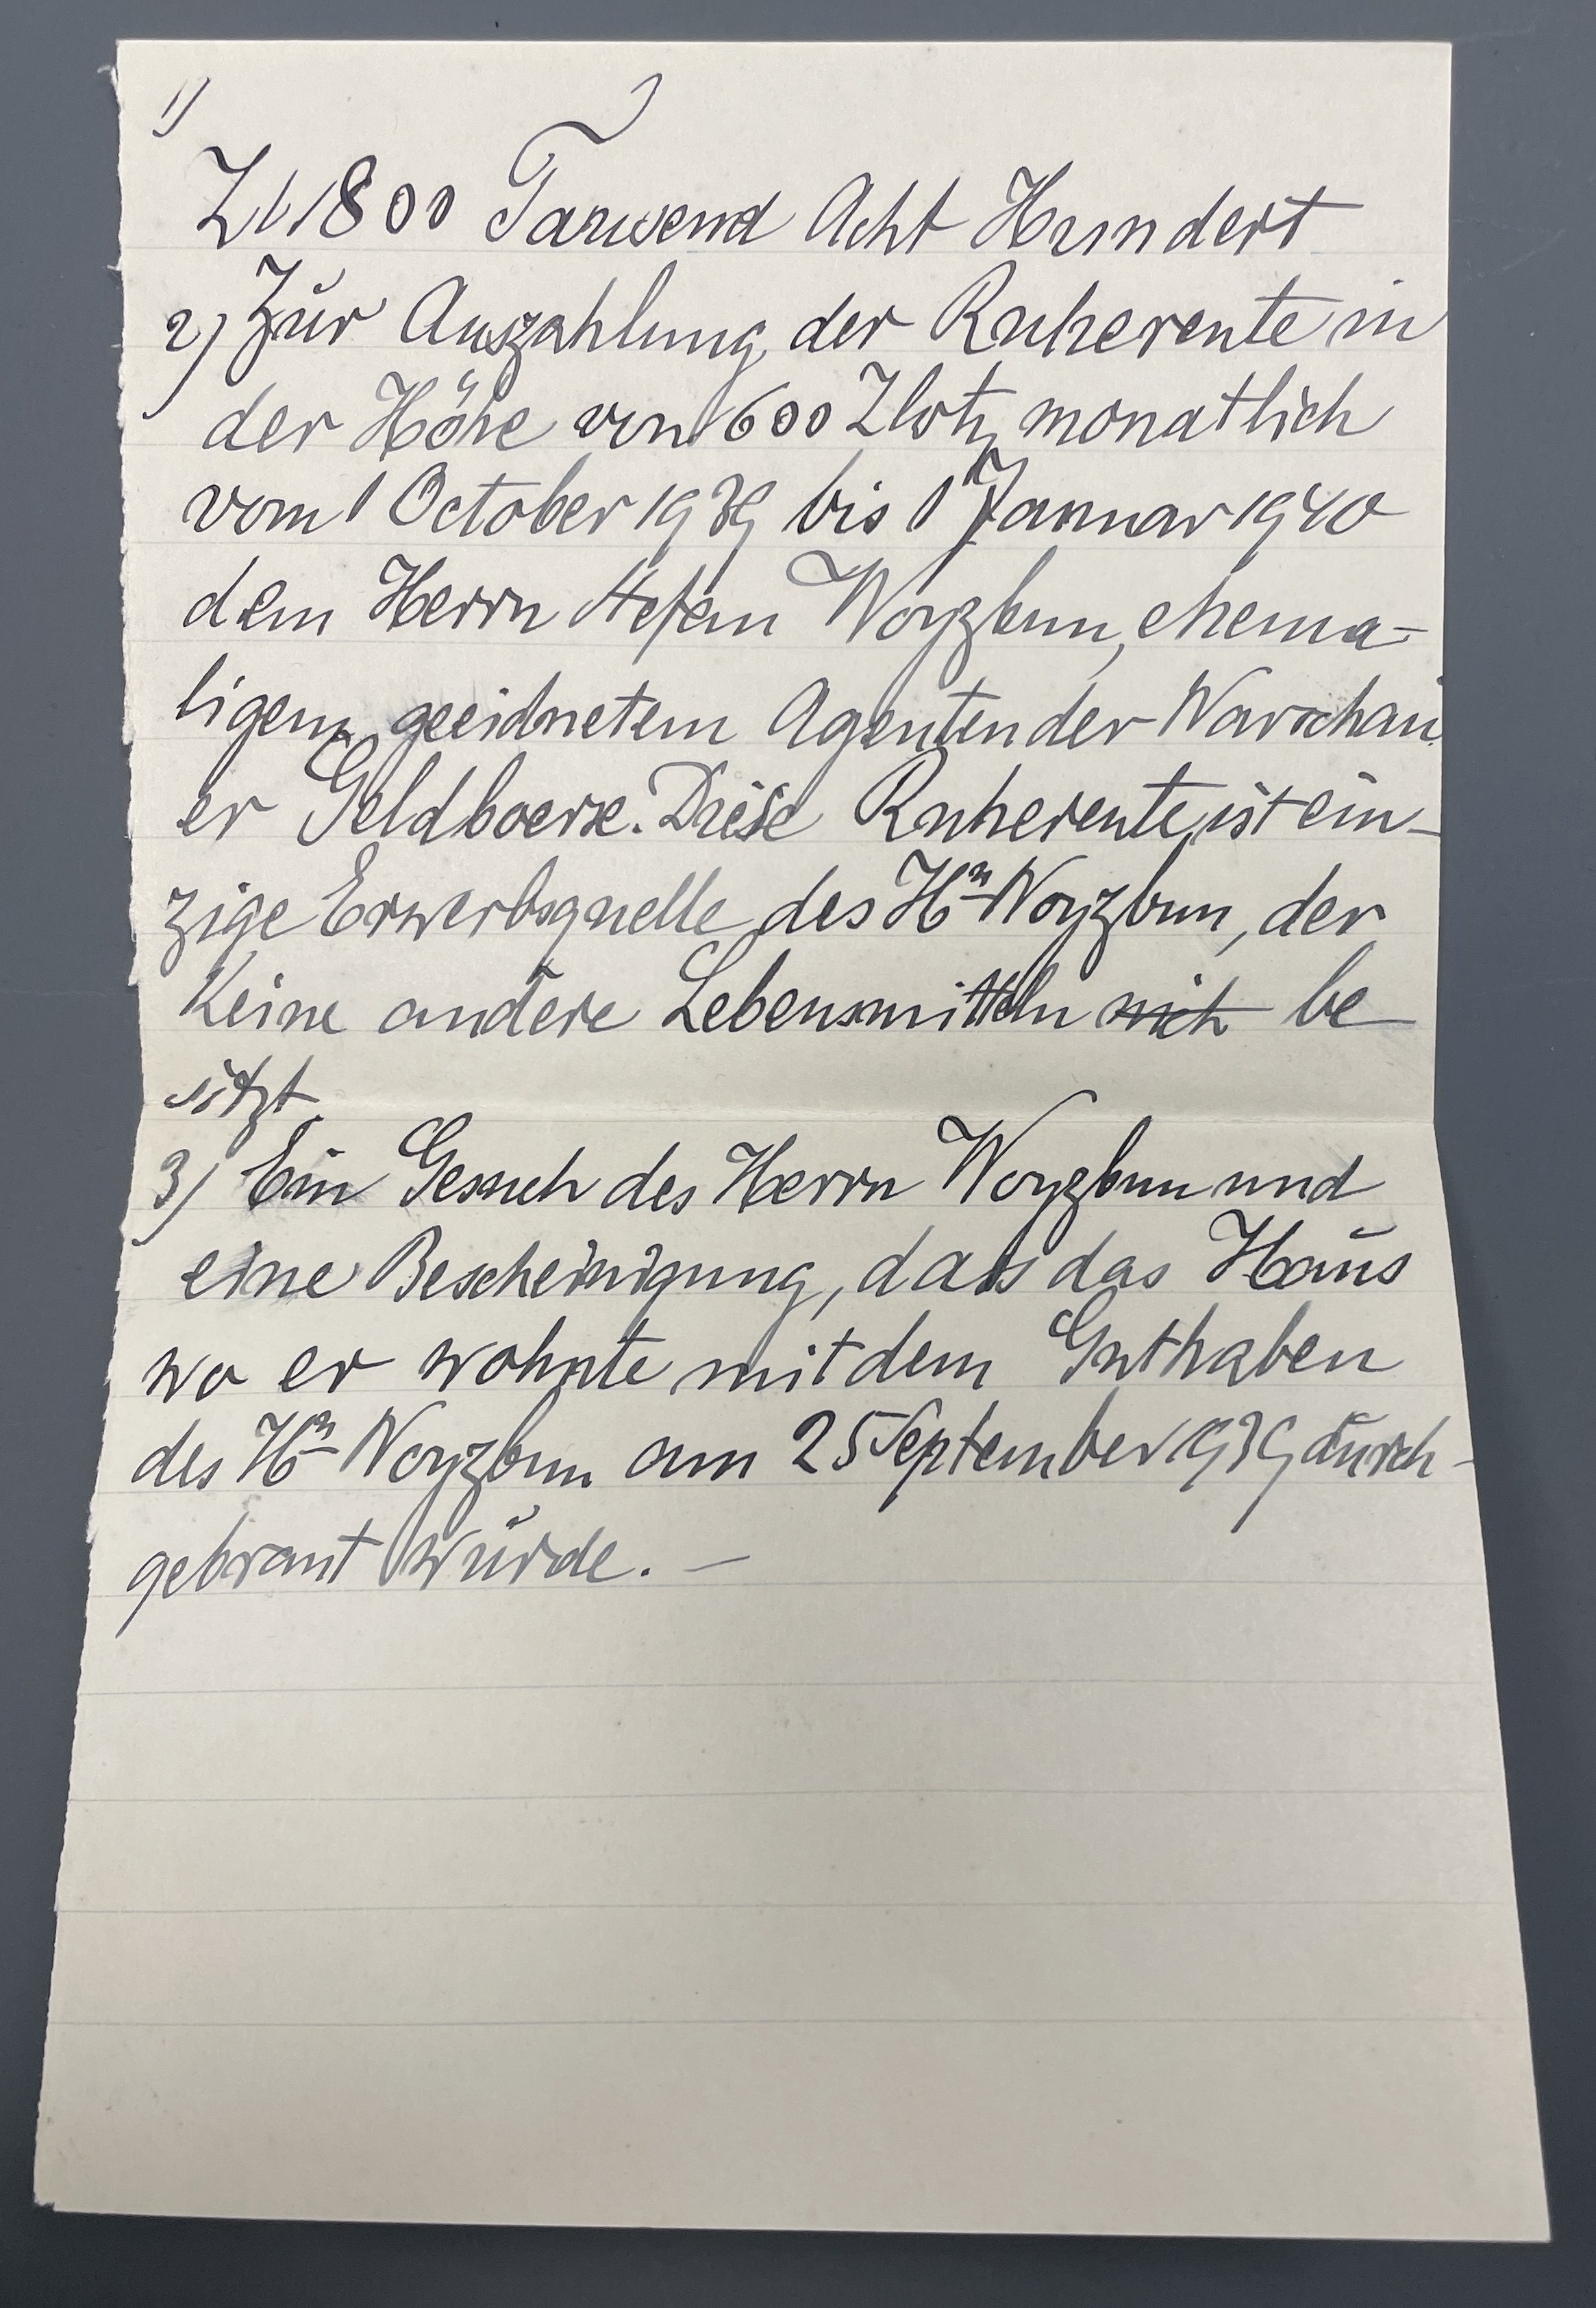 1)
Zł 1800 Tausend Acht Hundert
2) Zur Auszahlung der Ruherente in
der Höhe von 600 Zloty monatlich
vom 1 October 1939 bis 1 Januar 1940
dem Herrn Stefan Woyzbun, ehema-
ligem geeidnetem Agenten der Warschau
er Geldboerse. Diese Ruherente ist ein-
zige Erwerbsquelle des Hrn Woyzbun, der
Keine andere Lebensmitteln nich be
sitzt.
3) Ein Gesuch des Herrn Woyzbun und
eine Bescheinigung, dass das Haus
wo er wohnte mit dem Guthaben
des Hrn Woyzbun am 25 September 1939 durch-
gebrant wurde. —